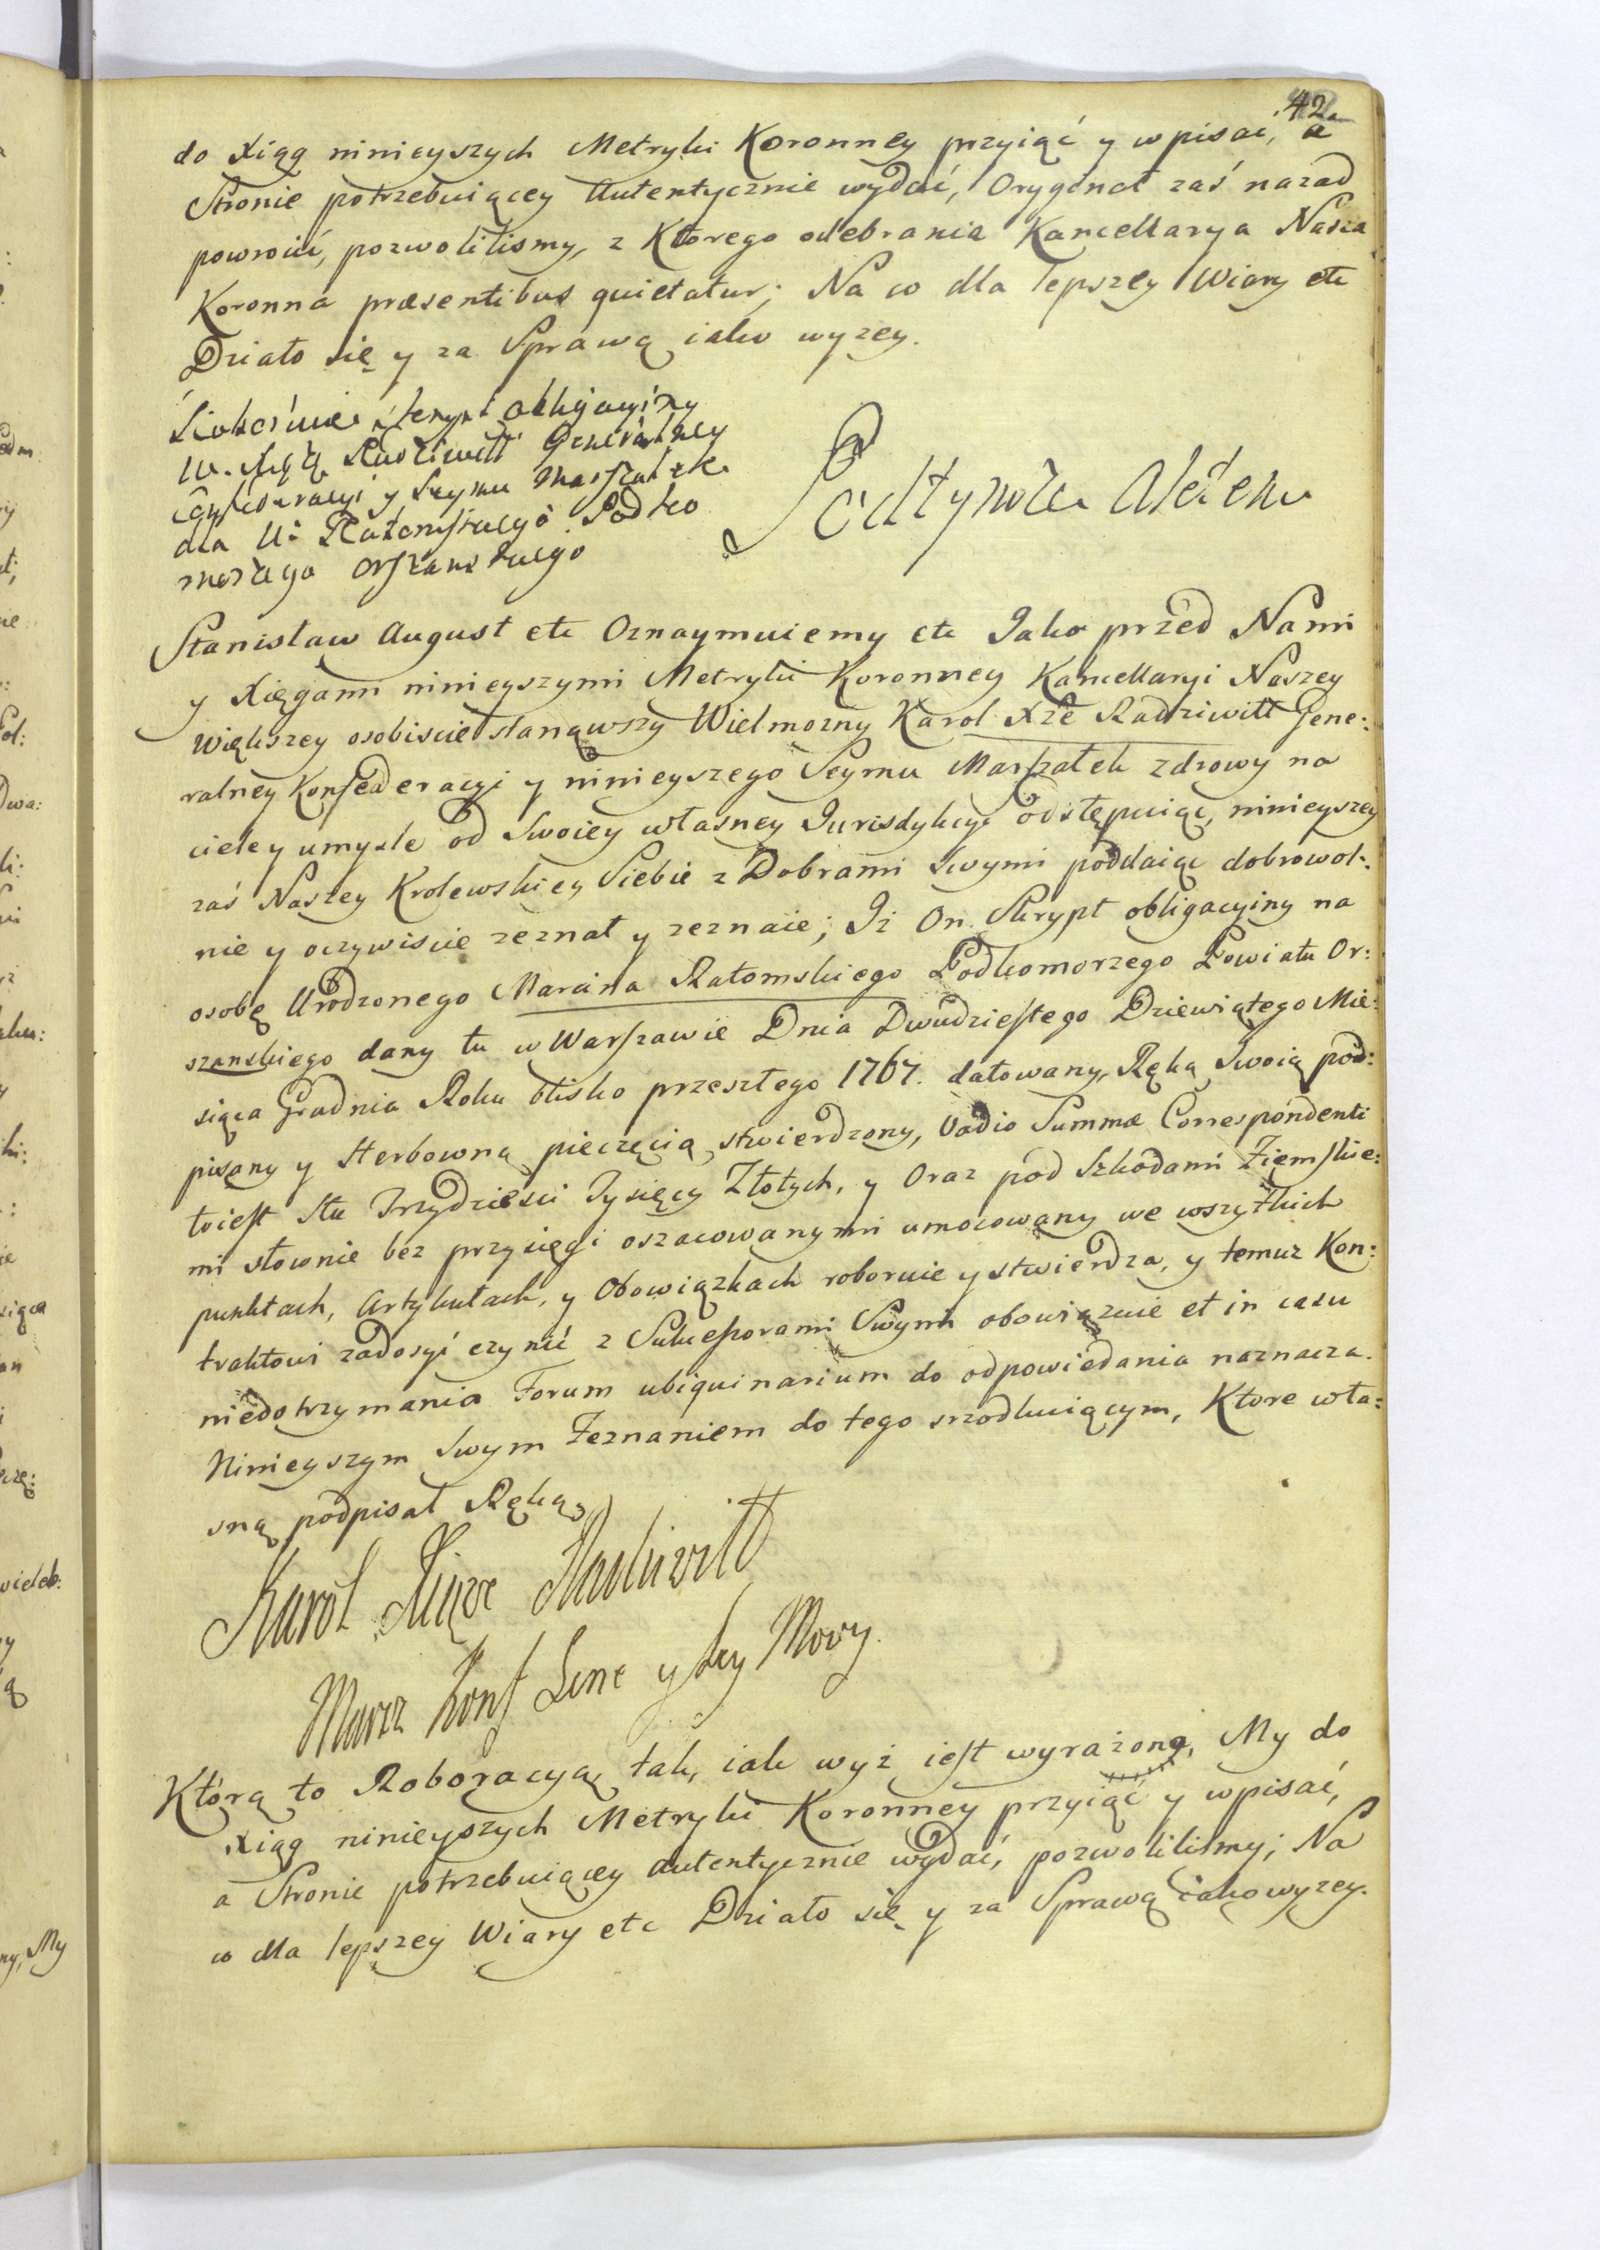 42
do Xiąg ninieyszych Metryki Koronney przyiąć y wpisać, a
Stronie potrzebuiącey Autentycznie wydać, Orygènał zaś nazad
powrocić, pozwolilismy, z Ktorego odebrania Kancellarya Nasza
Koronna præsentibus quietatur; Na co dla lepszey Wiary etc
Działo się y za Sprawą iako wyzey.
obligacyiny
Radziwiłł Generalney
Konfederacyi y Seymu Marszałek
dla U: Ratomskiego Podko
morzego Orszanskiego
Stanisław August etc Oznaymuiemy etc Jako przed Nami
y Xięgami ninieyszymi Metryki Koronney Kancellaryi Naszey
Większey osobiscie stanąwszy Wielmozny Karol Xże Radziwiłł Gene:
ralney Konfederacyi y ninieyszego Seymu Marszałek zdrowy na
ciele y umysle od Swoiey własney Jurisdykcyi odstępuiąc, ninieyszey
zaś Naszey Krolewskiey Siebie z Dobrami Swymi poddaiąc dobrowol:
nie y oczywiscie zeznał y zeznaie; Iż On Skrypt obligacyiny na
osobę Urodzonego Marcina Ratomskiego Podkomorzego Powiatu Or:
szanskiego dany tu w Warszawie Dnia Dwudziestego Dziewiątego Mie:
siąca Grudnia Roku blisko przeszłego 1767. datowany, Ręką Swoią pod:
pisany y Herbowną pieczęcią stwierdzony, Vadio Summæ Correspondenti
toiest Stu Trzydziesci Tysięcy Złotych, y Oraz pod Szkodami Ziemskie:
mi słownie bez przysięgi oszacowanymi umocowany we wszytkich
punktach, Artykułach, y Obowiązkach roboruie y stwierdza, y temuz Kon:
traktowi zadosyć czynić z Sukcessorami Swymi obowiązuie et in casu
niedotrzymania Forum ubiquinarium do odpowiedania naznacza.
Ninieyszym Swym Zeznaniem do tego srzodkuiącym, Ktore wła:
sną podpisał Ręką
Karol Xiąze Radziwiłł
Marsz Konf Gene y Sey
Którą to Roboracyą, tak, iak wyż iest wyrażona, My do
Xiąg ninieyszych Metryki Koronney przyiąć y wpisać,
a Stronie potrzebuiącey Autentycznie wydać, pozwolilismy; Na
co dla lepszey Wiary etc Działo się y za Sprawą iako wyzey.